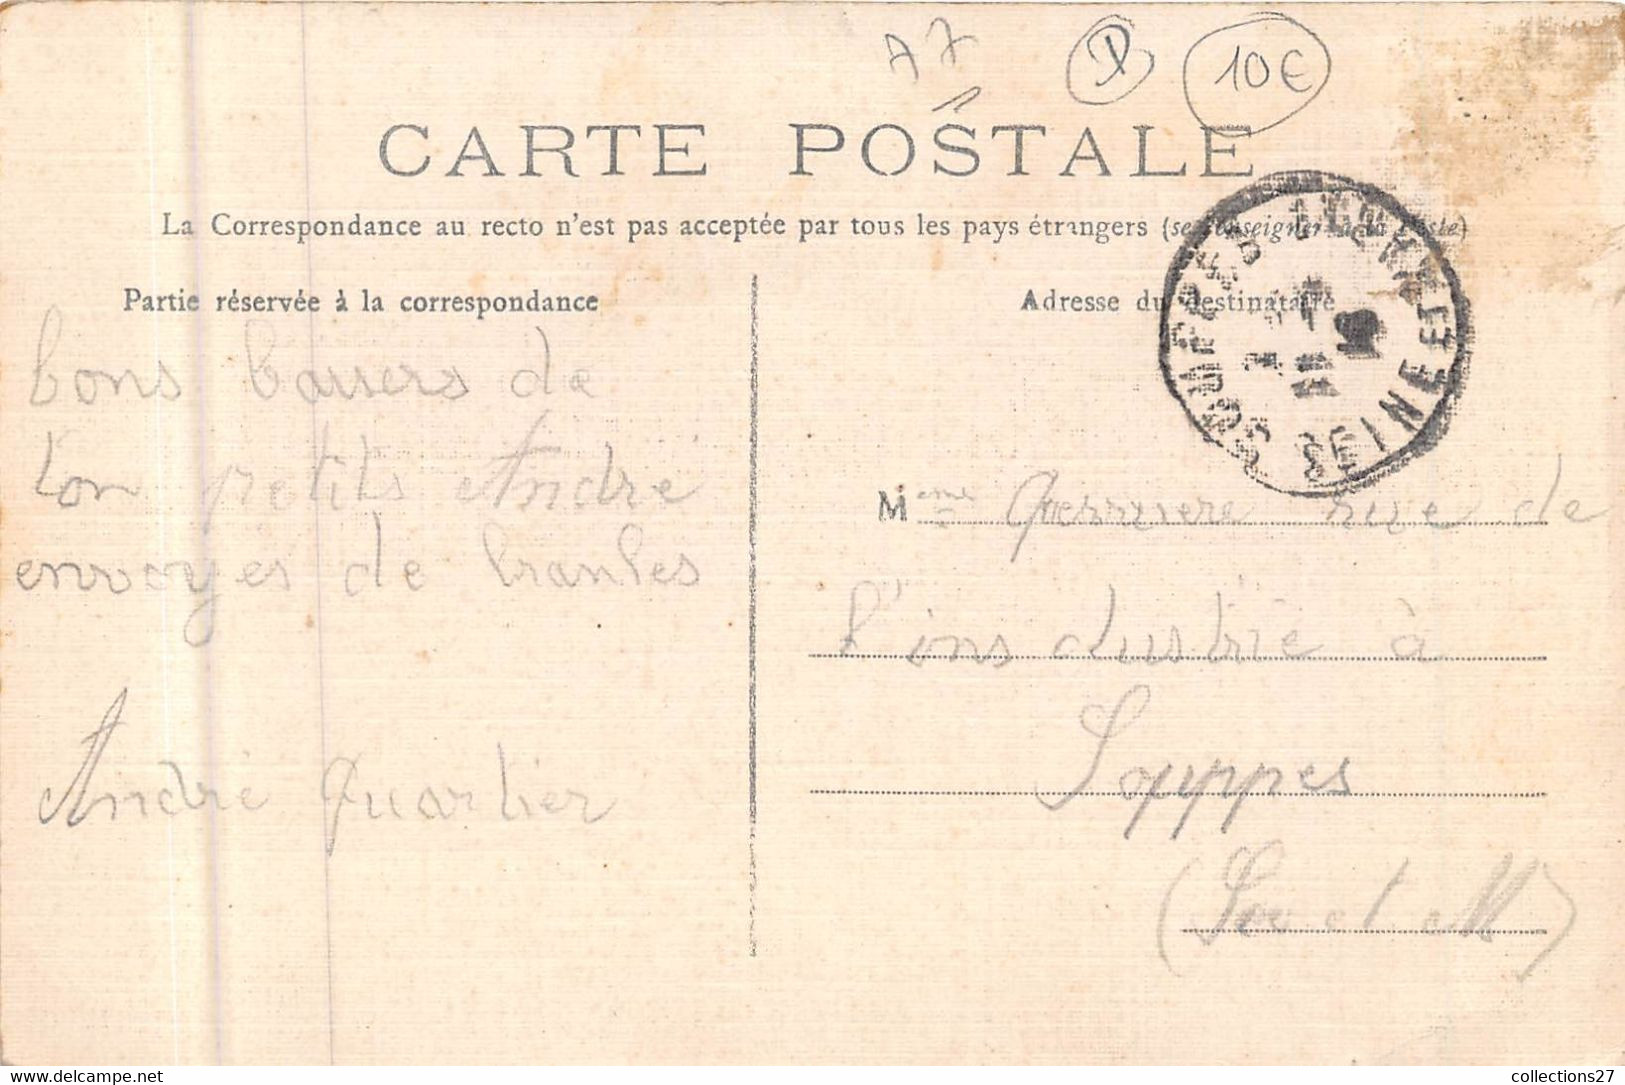 A7
10€
CARTE POSTALE
La Correspondance au recto n'est pas acceptée par tous les pays étrangers (se renseigner à la Poste)
Partie réservée à la correspondance
Adresse du destinataire
SOUPPES SEINE
bons baisers de
ton petits André
envoyés de
André Quartier
Mme rue de
l'industrie à
Souppes
(Sne et M)
collections27